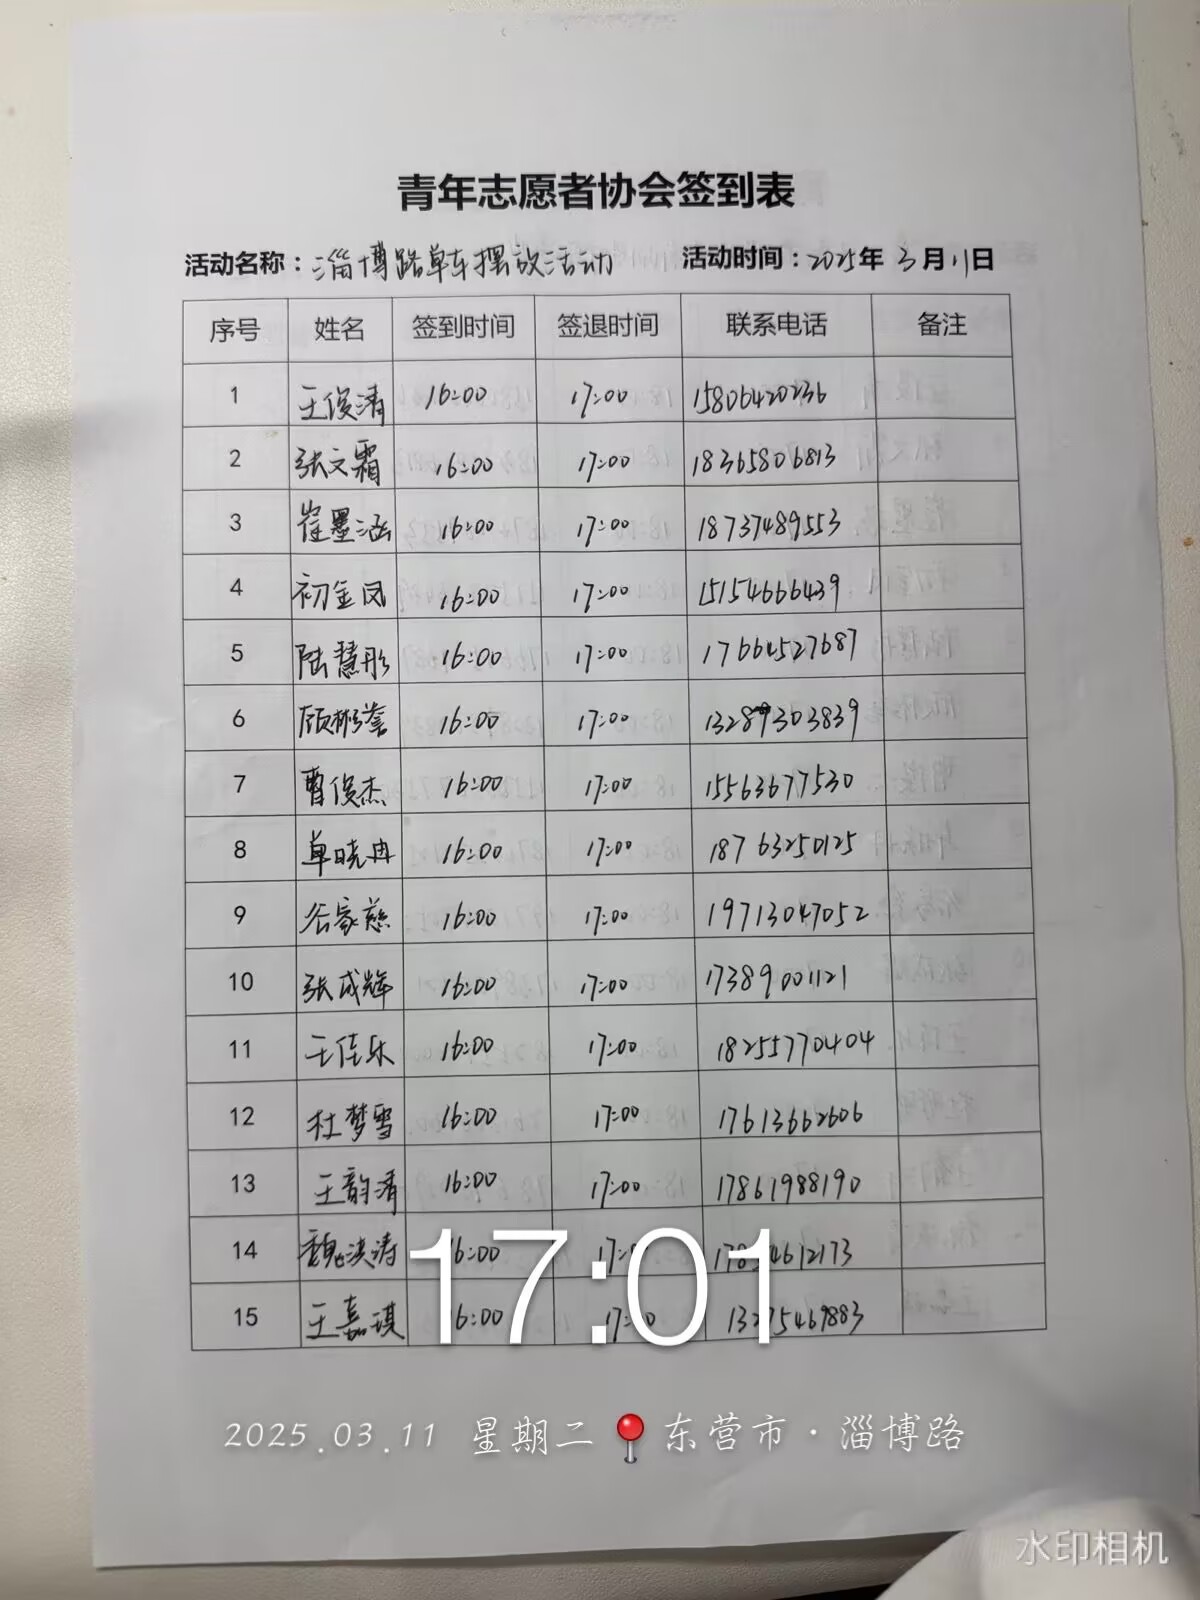 青年志愿者协会签到表
活动名称：淄博路单车摆放活动 活动时间：2025年3月11日
序号 姓名 签到时间 签退时间 联系电话 备注
1 王俊清 16:00 17:00 15806420236
2 张文霜 16:00 17:00 18365806813
3 崔墨涵 16:00 17:00 18737489553
4 初金凤 16:00 17:00 15154666439
5 陆慧彤 16:00 17:00 17664527687
6 顾彬誉 16:00 17:00 13289303839
7 曹俊杰 16:00 17:00 15563677530
8 单晓冉 16:00 17:00 18763250125
9 谷家慈 16:00 17:00 19713047052
10 张成辉 16:00 17:00 17389001121
11 王佳乐 16:00 17:00 18255770404
12 杜梦雪 16:00 17:00 17613662606
13 王韵清 16:00 17:00 17861988190
14 魏洪涛 16:00
15 王嘉琪 16:00
17:01
2025.03.11 星期二 东营市·淄博路
水印相机